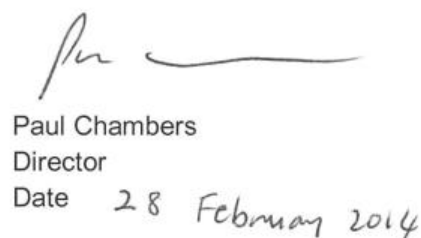 Paul Chambers
Director
Date 28 February 2014